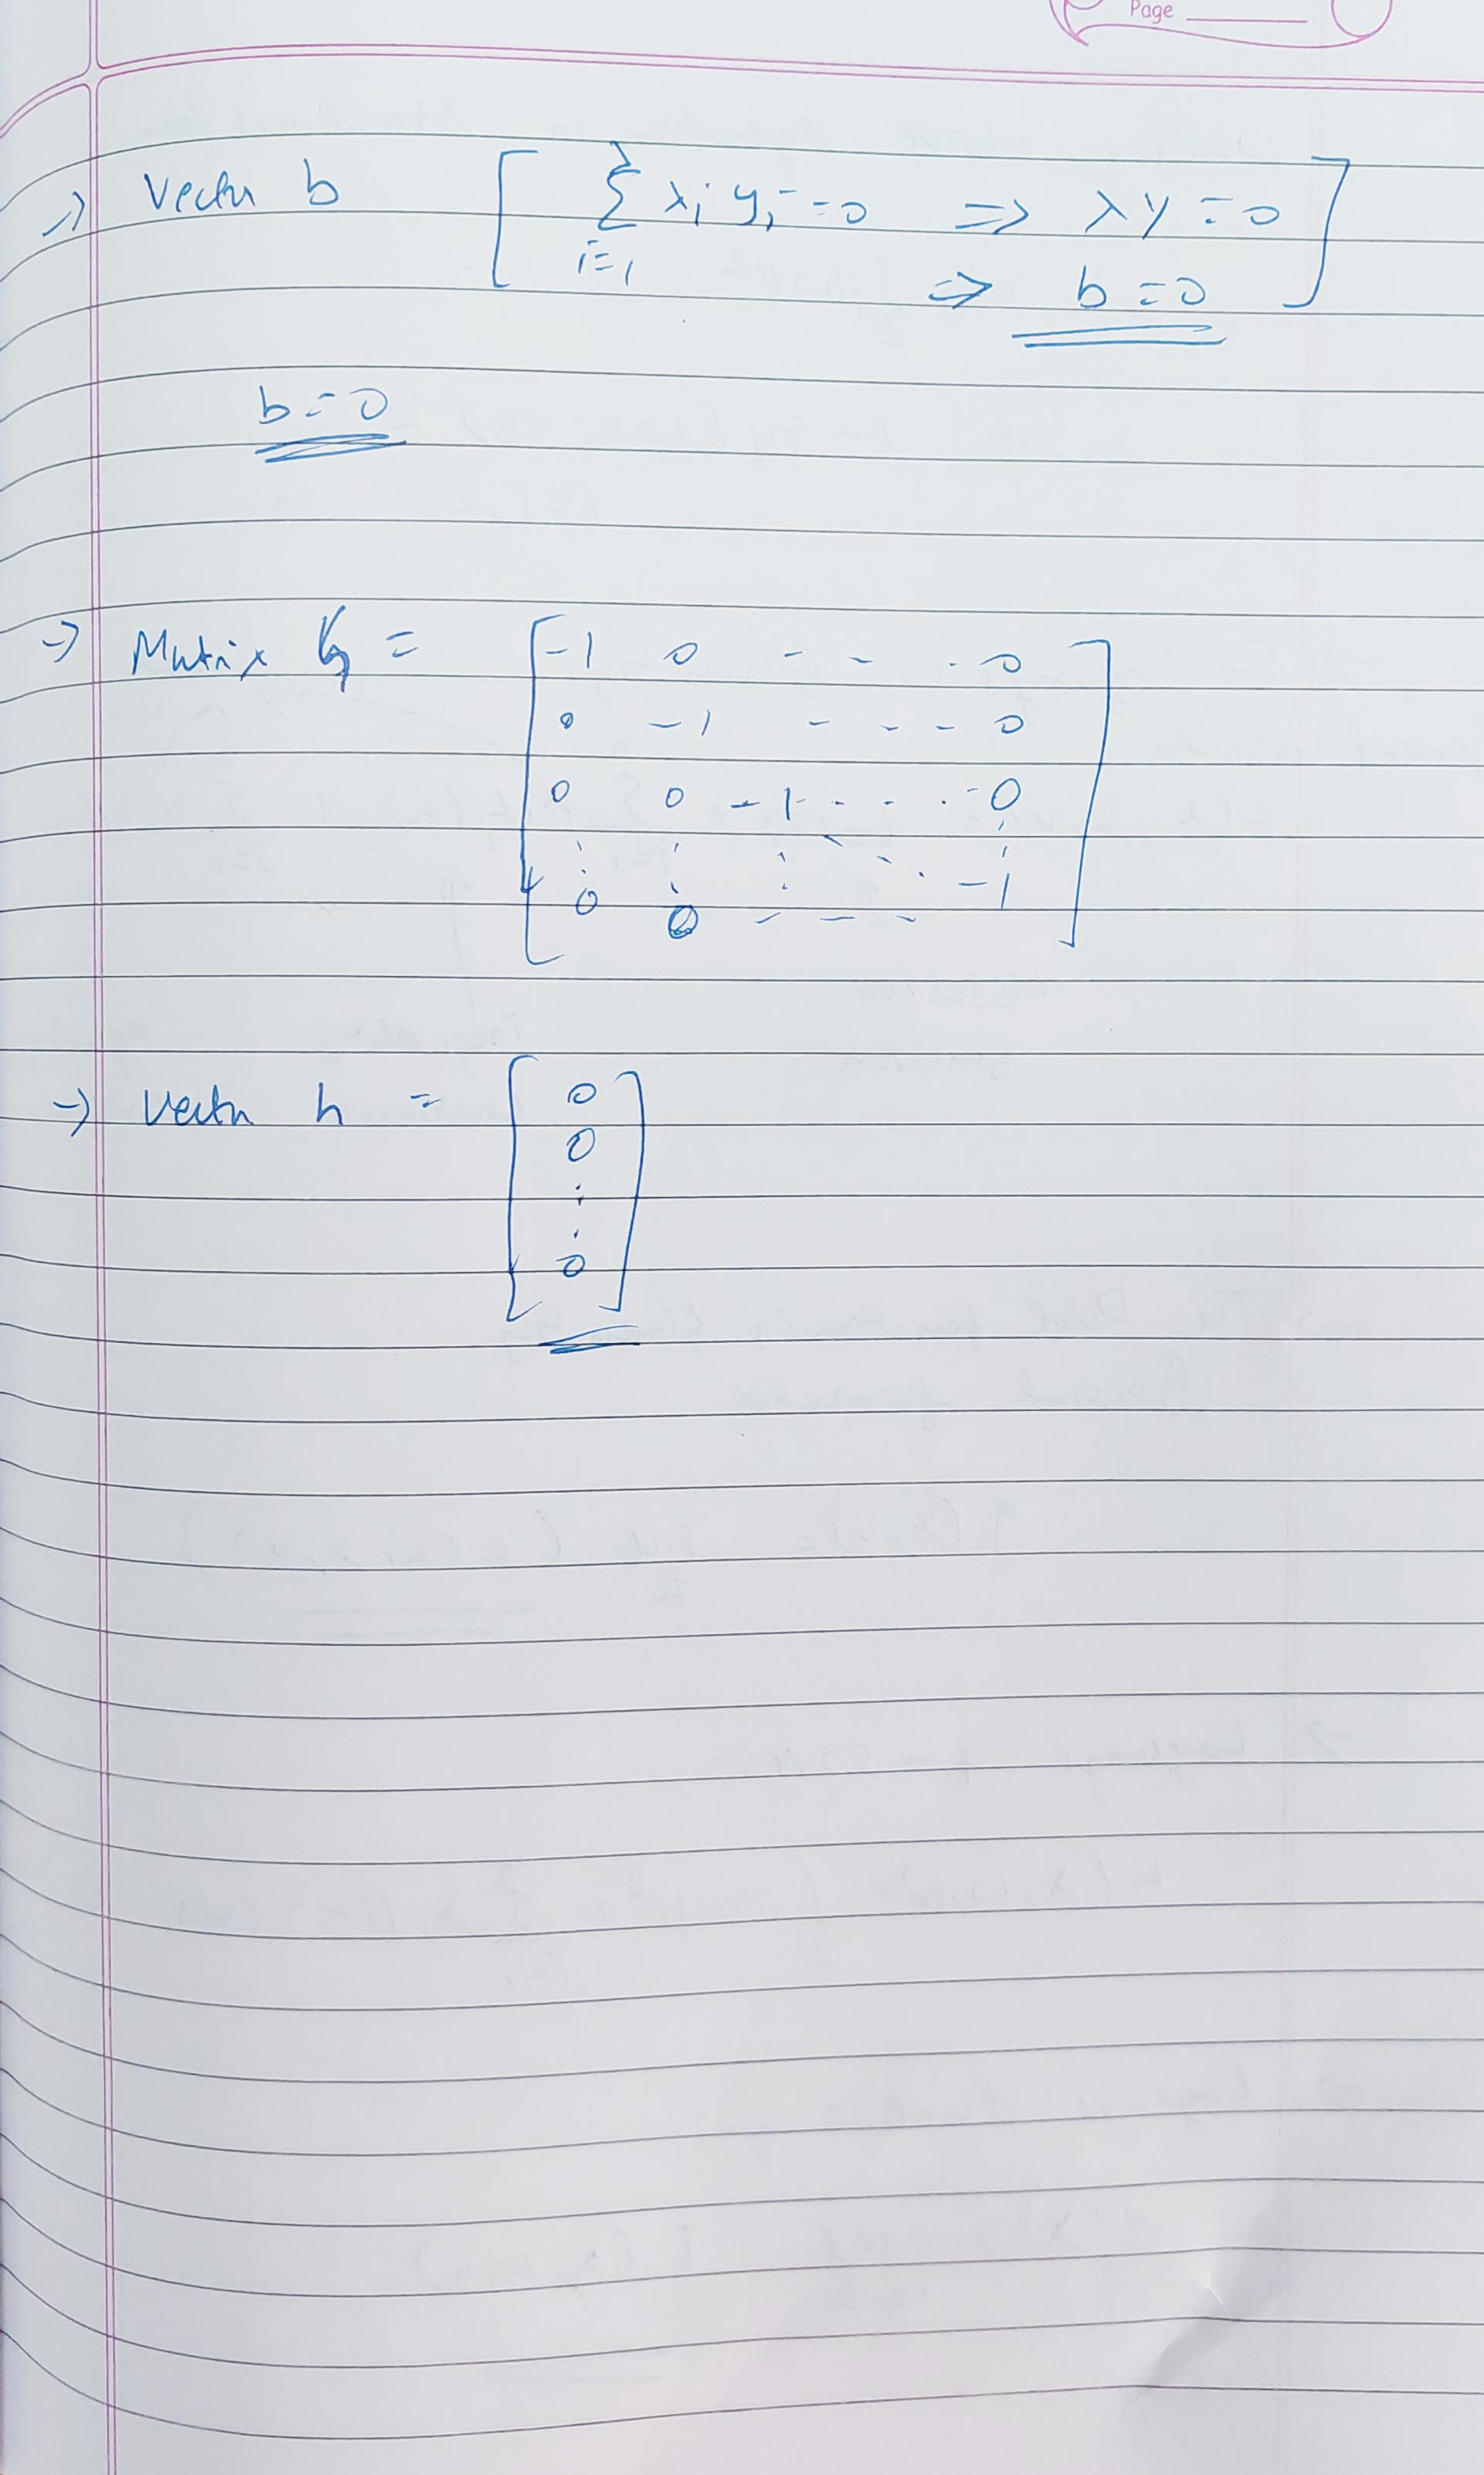 Page
→ Vector b [ Σ i=1 λi yi = 0 ⇒ λy = 0
⇒ b = 0 ]
b = 0
→ Matrix G = [ -1 0 - - . 0
0 -1 - - - 0
0 0 -1 - - . - 0
⋮ ⋮ ⋮ ⋱ -1
0 0 - - - ]
→ Vector h = [ 0
0
⋮
0 ]